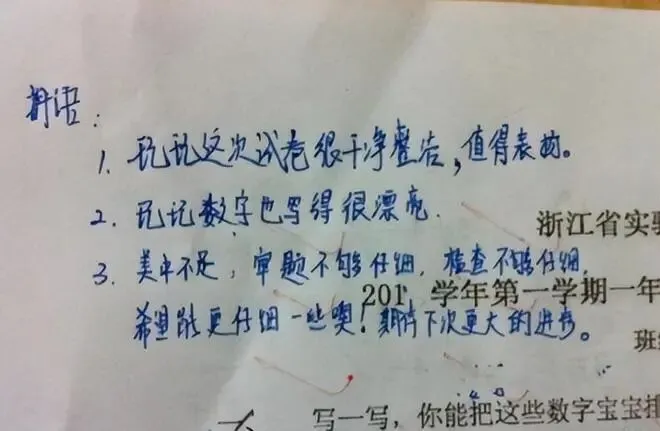 语：
1. 这次试卷很干净整洁，值得表扬。
2. 数字也写得很漂亮.
浙江省实
3. 美中不足，审题不够仔细，检查不够仔细，
201 学年第一学期一年
希望能更仔细一些噢！期待下次更大的进步。
班
写一写，你能把这些数字宝宝排